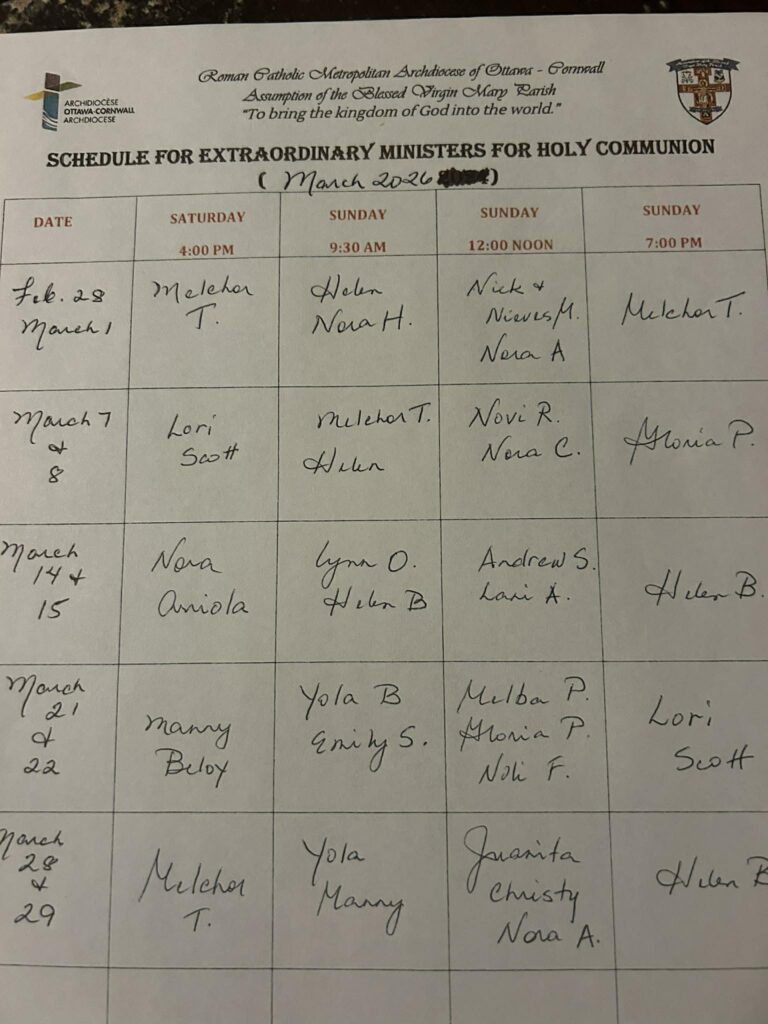 ARCHDIOCÈSE
OTTAWA-CORNWALL
ARCHDIOCESE
Roman Catholic Metropolitan Archdiocese of Ottawa - Cornwall
Assumption of the Blessed Virgin Mary Parish
"To bring the kingdom of God into the world."
SCHEDULE FOR EXTRAORDINARY MINISTERS FOR HOLY COMMUNION
( March 2026 )
DATE
SATURDAY
4:00 PM
SUNDAY
9:30 AM
SUNDAY
12:00 NOON
SUNDAY
7:00 PM
Feb. 28
March 1
Melchor
T.
Helen
Nora H.
Nick &
Nieves M.
Nora A
Melchor T.
March 7
&
8
Lori
Scott
Melchor T.
Helen
Novi R.
Nora C.
Gloria P.
March
14 &
15
Nora
Aniola
Lynn O.
Helen B
Andrew S.
Lani A.
Helen B.
March
21
&
22
Manny
Beloy
Yola B
Emily S.
Melba P.
Gloria P.
Noli F.
Lori
Scott
March
28
&
29
Melchor
T.
Yola
Manny
Juanita
Christy
Nora A.
Helen B